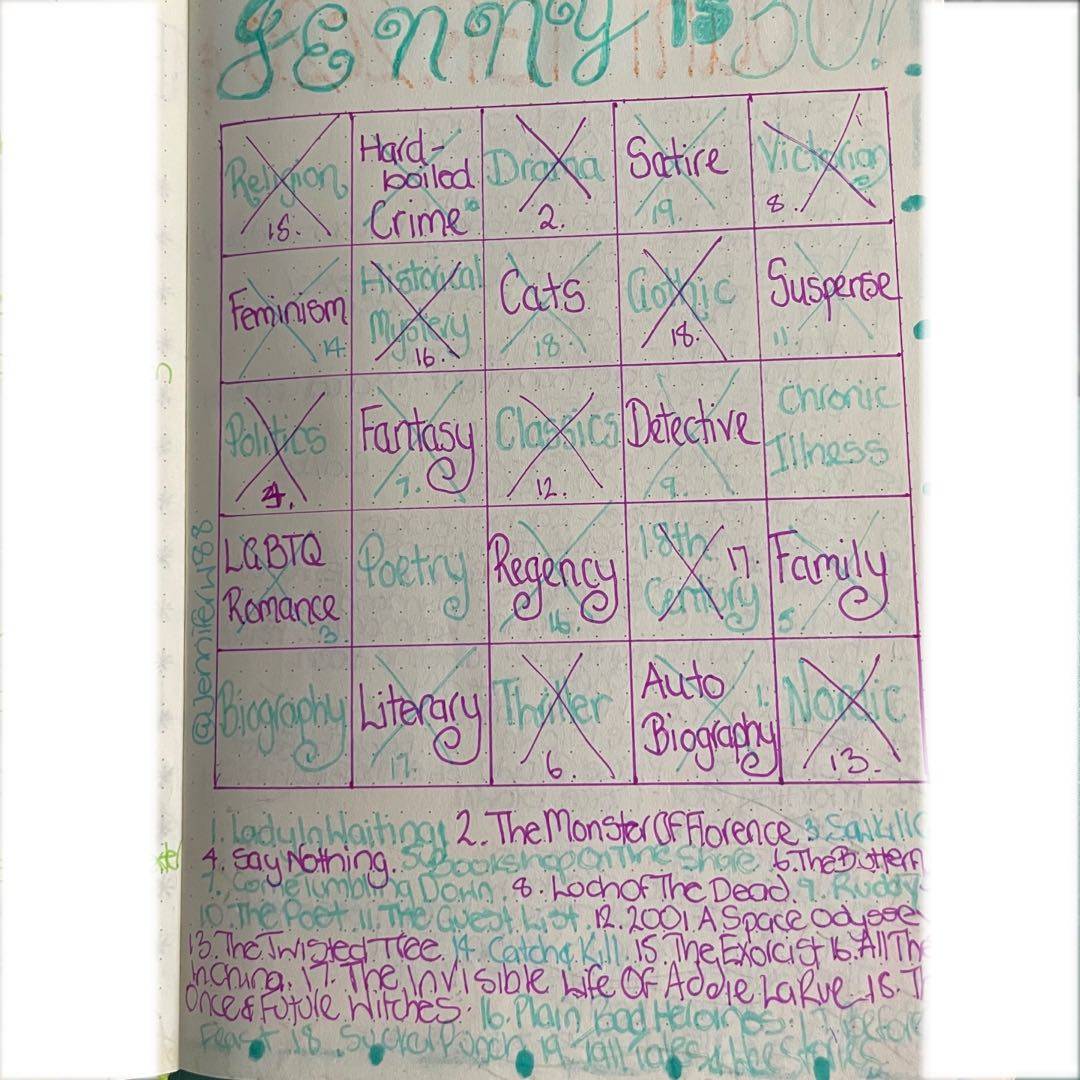 JENNY is 30!
Religion 15.
Hard-boiled Crime 10
Drama 2.
Satire 19.
Victorian 8.
Feminism 14.
Historical Mystery 16.
Cats 18.
Gothic 18.
Suspense 11.
Politics 4.
Fantasy 7.
Classics 12.
Detective 9.
Chronic Illness
LGBTQ Romance 3.
Poetry
Regency 16.
18th Century 17.
Family 5
Biography
Literary 17.
Thriller 6.
Auto Biography 1.
Nordic 13.
@Jenniferw88
1. Lady In Waiting 2. The Monster Of Florence 3.
4. Say Nothing. 5. Bookshop On The Shore. 6. The Butterf
7. Come Tumbling Down. 8. Loch Of The Dead. 9. Ruddy
10. The Poet. 11. The Guest List. 12. 2001 A Space Odysse
13. The Twisted Tree. 14. Catch & Kill. 15. The Exorcist 16. All The
In China. 17. The Invisible Life Of Addie LaRue. 18. T
Once & Future Witches. 16. Plain Bad Heroines. 17. Before
Feast 18. Sucker Punch 19. Tall Tales &